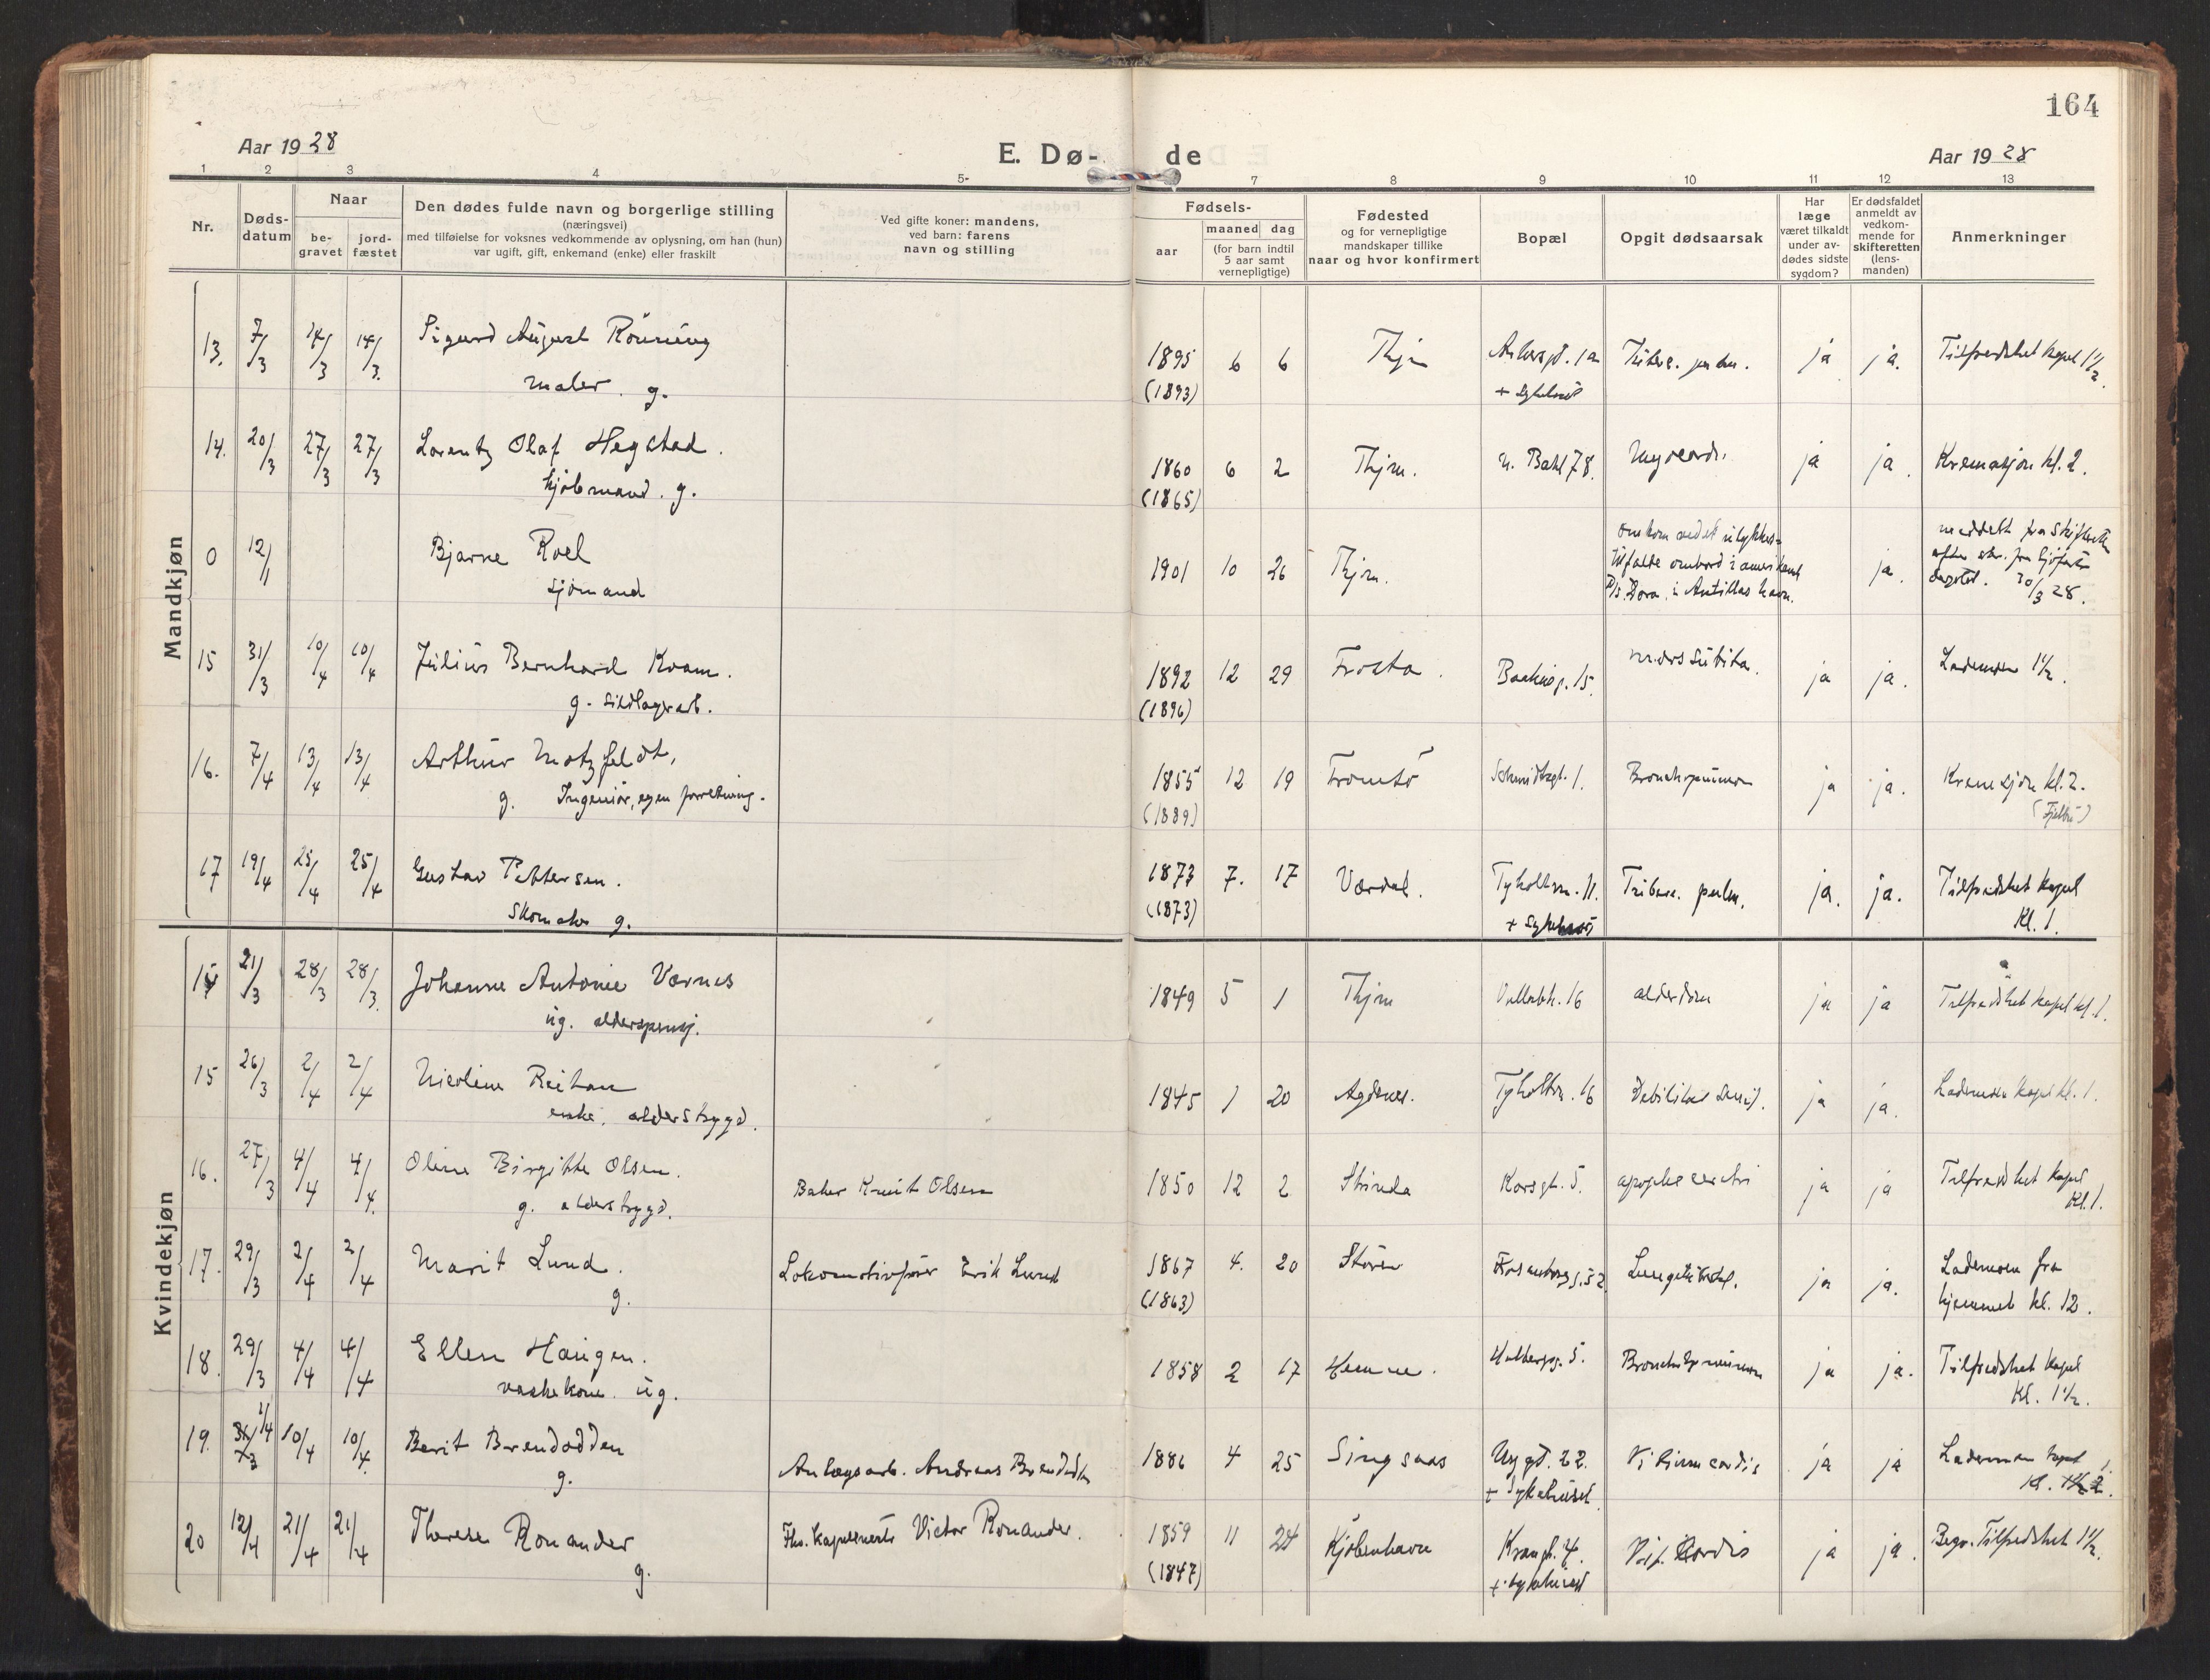 164
Aar 1928
E. Dø- de
Aar 1928
1 2 3 4 5- 7 8 9 10 11 12 13
Nr.
Døds-
datum
Naar
be-
gravet
jord-
fæstet
Den dødes fulde navn og borgerlige stilling
(næringsvei)
med tilføielse for voksnes vedkommende av oplysning, om han (hun)
var ugift, gift, enkemand (enke) eller fraskilt
Ved gifte koner: mandens,
ved barn: farens
navn og stilling
Fødsels-
aar
maaned dag
(for barn indtil
5 aar samt
vernepligtige)
Fødested
og for vernepligtige
mandskaper tillike
naar og hvor konfirmert
Bopæl
Opgit dødsaarsak
Har
læge
været tilkaldt
under av-
dødes sidste
sygdom?
Er dødsfaldet
anmeldt av
vedkom-
mende for
skifteretten
(lens-
manden)
Anmerkninger
Mandkjøn
13. 7/3 14/3 14/3. Sigurd August Rönning 1895 6 6 Thjm ja ja. Tilfredshet kapel 1½.
maler. g. (1893) + Sykehus
14. 20/3 27/3 27/3 Lorentz Olaf Hegstad. 1860 6 2 Thjm. n. Bakl 78. Myocardi. ja ja. Kremasjon kl. 2.
kjøbmand. g. (1865)
0 12/11 Bjarne Roel 1901 10 26 Thjm. omkom ved et ulykkes-
tilfælde ombord i amerikansk
D/s. Dora i Antillas havn. ja. meddelt fra skifteretten
30/3 28.
sjömand
15 31/3 10/4 10/4 Julius Bernhard Kvam. 1892 12 29 Frosta. Bakkeg. 15. mors subita. ja ja. Lademoen 1½.
g. sildlagerarb. (1896)
16. 7/4 13/4 13/4 Arthur Motzfeldt, 1855 12 19 Tromsö Schmidtsgt. 1. Bronchopneumon ja ja. Kremasjon kl. 2.
g. Ingeniör, egen forretning. (1889)
17 19/4 25/4 25/4 Gustav Pettersen. 1873 7. 17 Værdal. Tyholtvn. 11. Tuberc. pulm. ja. ja. Tilfredshet kapel
skomaker g. (1873) + Sykehus Kl. 1.
Kvindekjøn
14 21/3 28/3 28/3. Johanne Antonie Værnes 1849 5 1 Thjm alderdom ja ja Tilfredshet kapel kl. 1.
ug. alderspensj.
15 26/3 2/4 2/4 Nicoline Reitan 1845 1 20 Agdenes. Tyholtvn. 16 Debilitas senil. ja ja. Lademoen kapel kl. 1.
enke. alderstrygd.
16. 27/3 4/4 4/4. Oline Birgitte Olsen. Baker Knut Olsen 1850 12 2 Strinda Korsgt. 5. apoplex cerebri ja ja Tilfredshet kapel
g. alderstrygd. Kl. 1.
17. 29/3 2/4 2/4 Marit Lund. Lokomotivfører Erik Lund 1867 4. 20 Stören Rosenborgg. 52 ja ja. Lademoen fra
g. (1863) hjemmet kl. 12.
18. 29/3 4/4 4/4 Ellen Haugen. 1858 2 17 Hemne. Holbergsg. 5. Bronchopneumon ja ja. Tilfredshet kapel
vaskekone. ug. Kl. 1½.
19. 31/3 1/4 10/4 10/4. Berit Brendodden 1886 4 25 Singsaas Nygt. 22. Vitium cordis ja ja Lademoen kapel
g. Anlægsarb. Andreas Brendodden + Sykehuset. Kl. 1½ 2.
20 12/4 21/4 21/4 Therese Ronander Fhv. Kapelmester Victor Ronander. 1859 11 24 Kjöbenhavn Krangt. 4. Vit. Cordis ja ja. Begr. Tilfredshet 1½.
g. (1847) + sykehuset